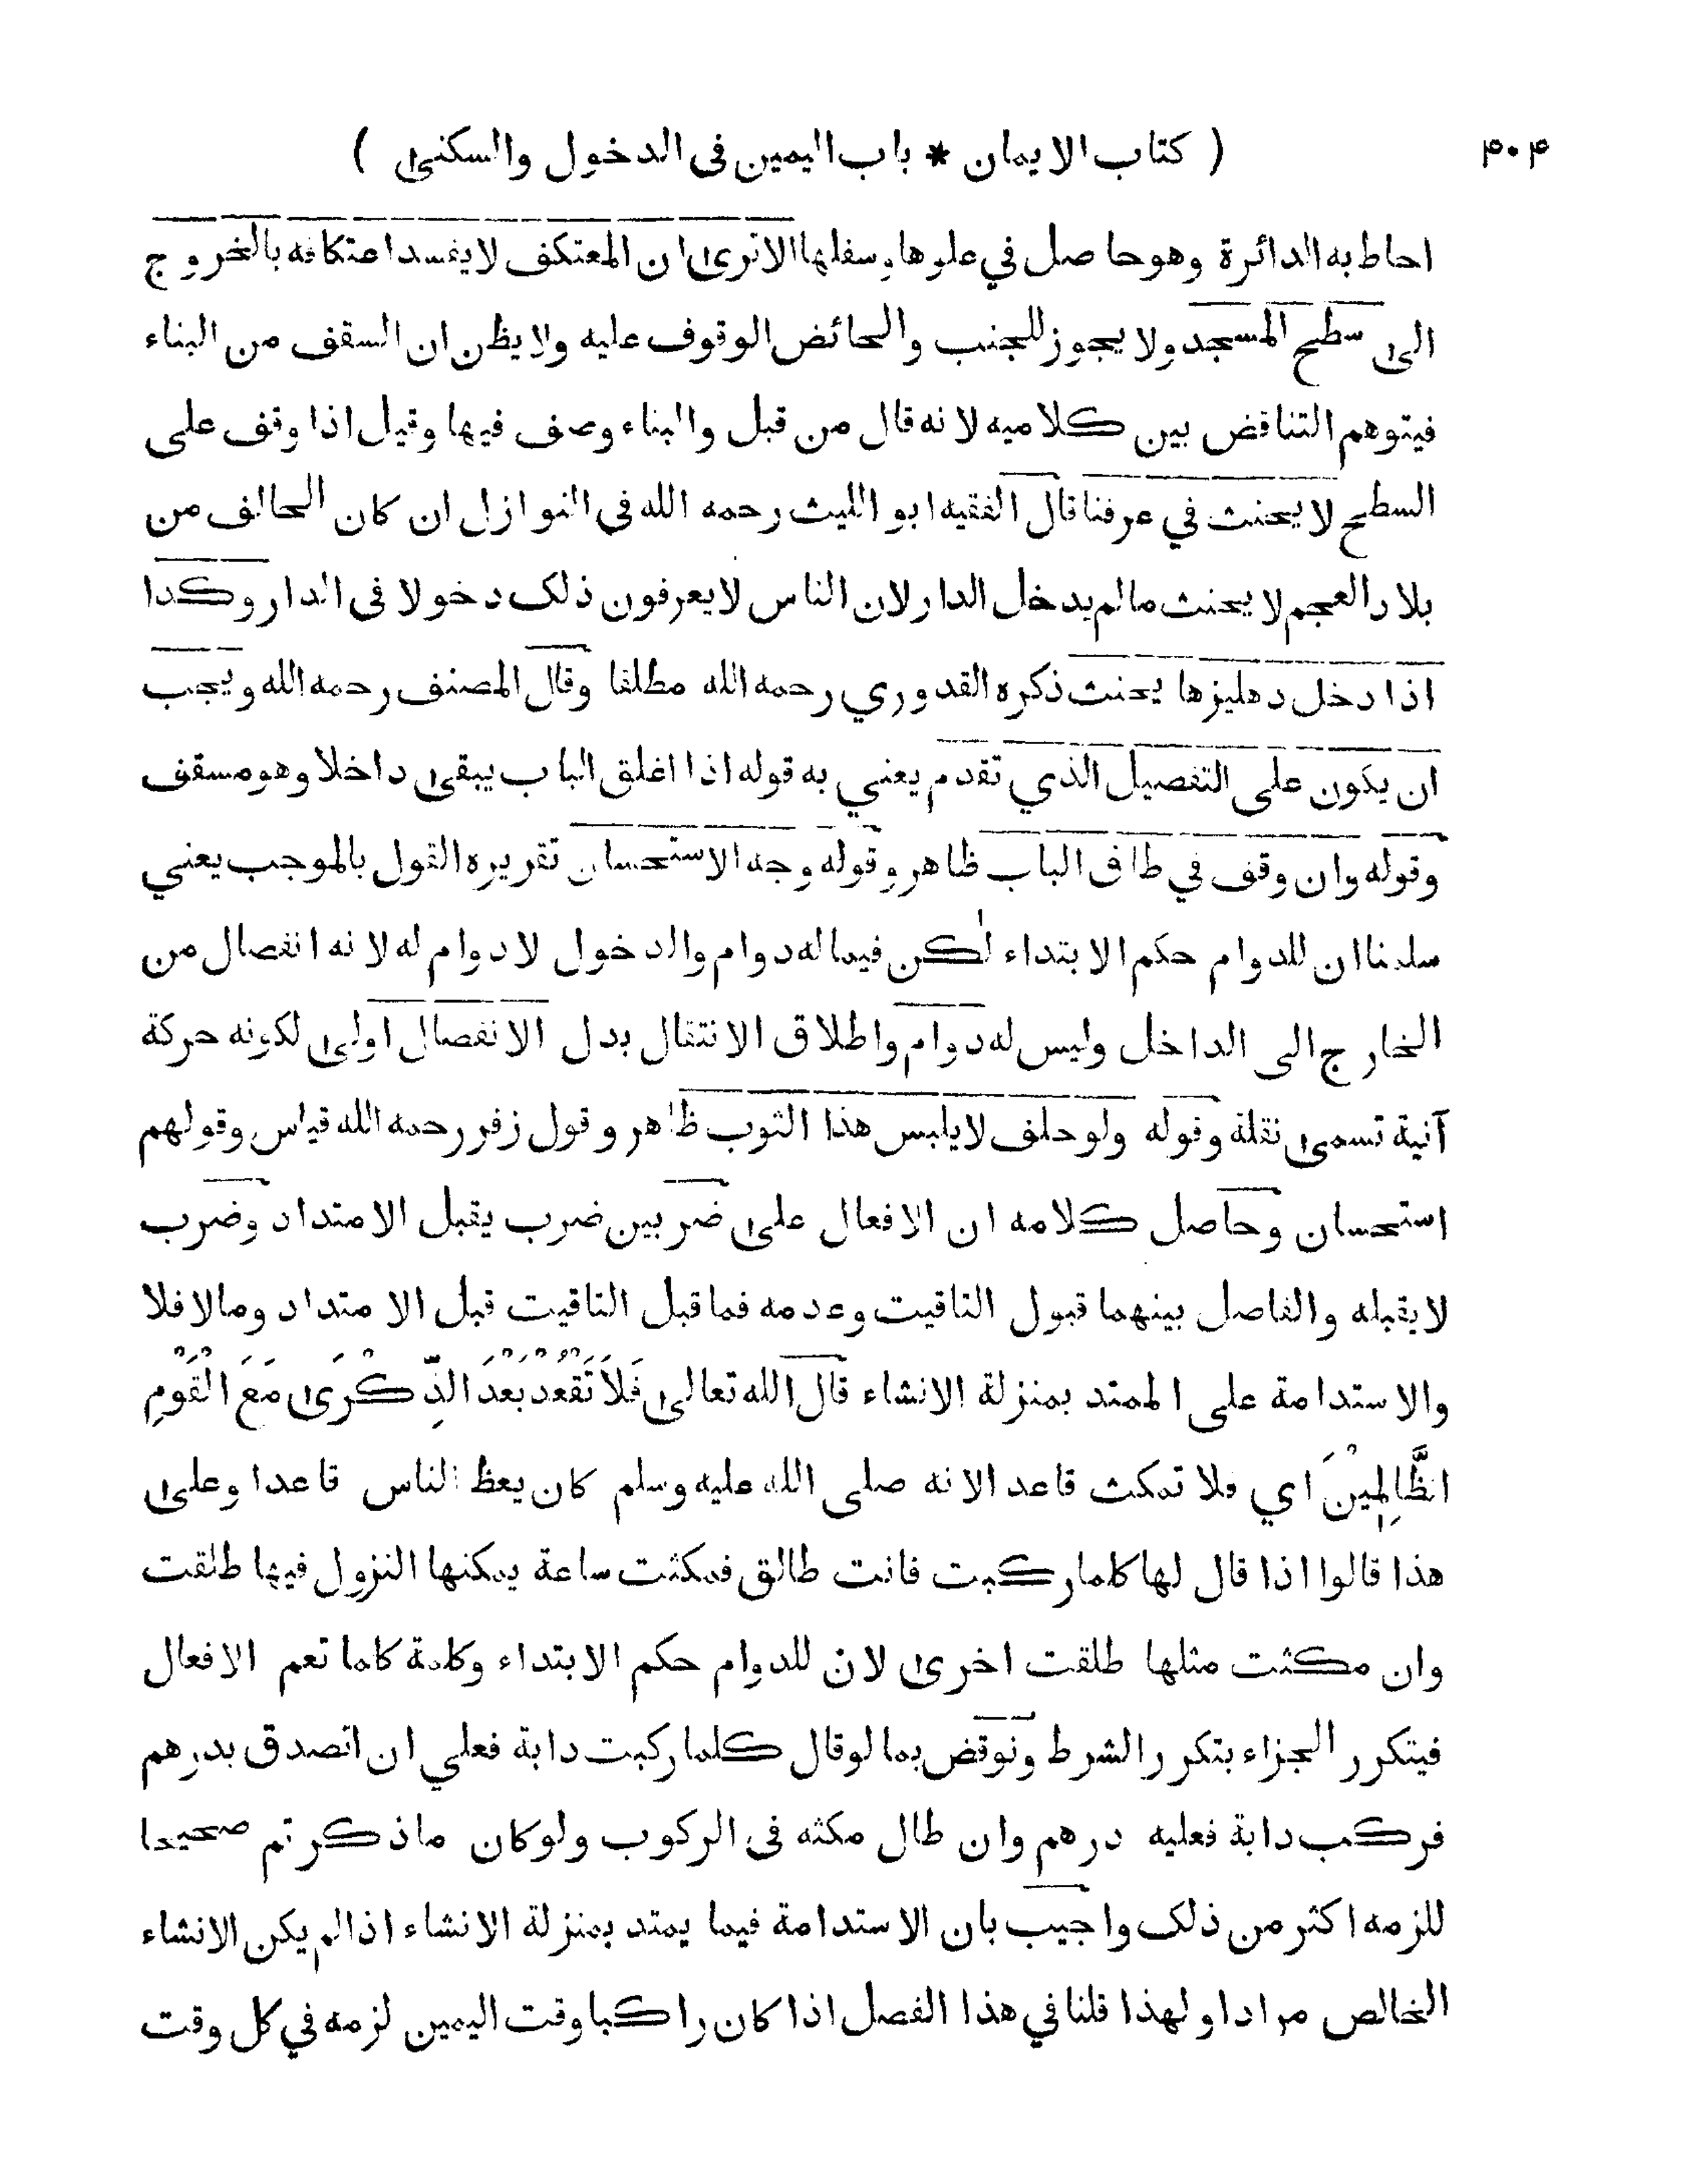 ۴۰۴ ( كتاب الايمان * باب اليمين فى الدخول والسكنى )
احاط به الدائرة وهو حاصل في علوها وسفلها الا ترى ان المعتكف لا يفسد اعتكافه بالخروج
الى سطح المسجد ولا يجوز للجنب والحائض الوقوف عليه ولا يظن ان السقف من البناء
فيتوهم التناقض بين كلاميه لانه قال من قبل والبناء وصف فيها وقيل اذا وقف على
السطح لا يحنث في عرفنا قال الفقيه ابو الليث رحمه الله فى النوازل ان كان الحالف من
بلاد العجم لا يحنث مالم يدخل الدار لان الناس لا يعرفون ذلك دخولا فى الدار وكذا
اذا دخل دهليزها يحنث ذكره القدوري رحمه الله مطلقا وقال المصنف رحمه الله ويجب
ان يكون على التفصيل الذي تقدم يعني به قوله اذا اغلق الباب يبقى داخلا وهو مسقف
وقوله وان وقف في طاق الباب ظاهر وقوله وجه الاستحسان تقريره القول بالموجب يعني
سلمنا ان للدوام حكم الابتداء لكن فيما له دوام والدخول لا دوام له لانه انفصال من
الخارج الى الداخل وليس له دوام واطلاق الانتقال بدل الانفصال اولى لكونه حركة
آنية تسمى نقلة وقوله ولو حلف لا يلبس هذا الثوب ظاهر وقول زفر رحمه الله قياس وقولهم
استحسان وحاصل كلامه ان الافعال على ضربين ضرب يقبل الامتداد وضرب
لا يقبله والفاصل بينهما قبول التاقيت وعدمه فما قبل التاقيت قبل الامتداد ومالا فلا
والاستدامة على الممتد بمنزلة الانشاء قال الله تعالى فَلَا تَقْعُدْ بَعْدَ الذِّكْرَى مَعَ الْقَوْمِ
الظَّالِمِيْنَ اي فلا تمكث قاعدا لانه صلى الله عليه وسلم كان يعظ الناس قاعدا وعلى
هذا قالوا اذا قال لها كلما ركبت فانت طالق فمكثت ساعة يمكنها النزول فيها طلقت
وان مكثت مثلها طلقت اخرى لان للدوام حكم الابتداء وكلمة كلما تعم الافعال
فيتكرر الجزاء بتكرر الشرط ونوقض بما لو قال كلما ركبت دابة فعلي ان اتصدق بدرهم
فركب دابة فعليه درهم وان طال مكثه فى الركوب ولو كان ما ذكرتم صحيحا
للزمه اكثر من ذلك واجيب بان الاستدامة فيما يمتد بمنزلة الانشاء اذا لم يكن الانشاء
الخالص مرادا ولهذا قلنا في هذا الفصل اذا كان راكبا وقت اليمين لزمه في كل وقت